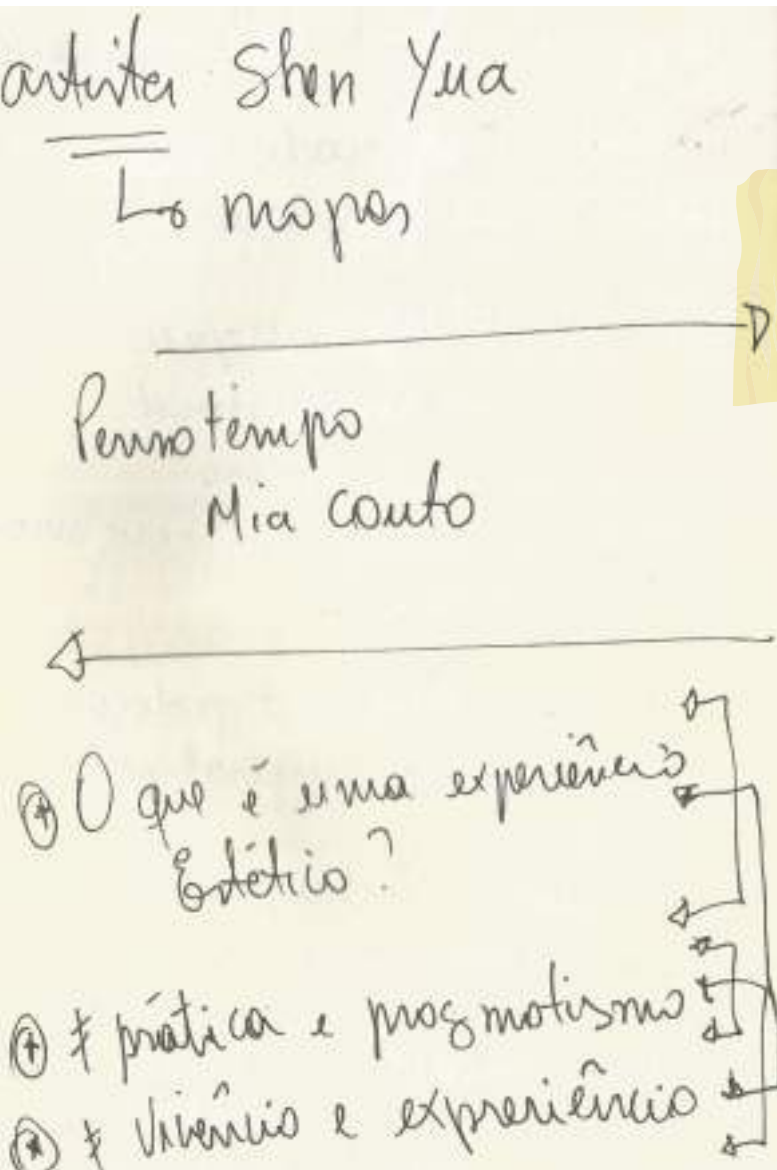 artista Shen Yua
↳ mapas
Pensatempo
Mia Couto
⊛ O que é uma experiência
Estética?
⊛ ≠ prática e pragmatismo
⊛ ≠ vivência e experiência